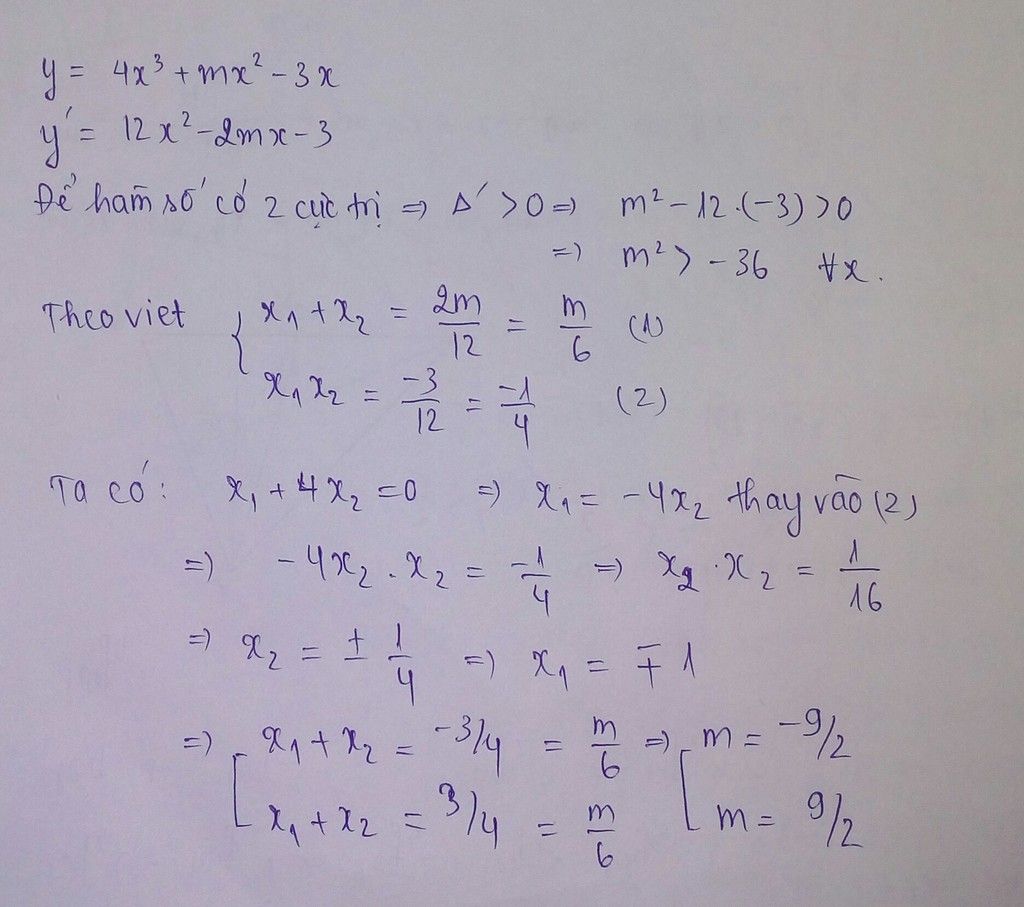 y = 4x³ + mx² - 3x
y' = 12x² - 2mx - 3
Để hàm số có 2 cực trị => Δ' > 0 => m² - 12.(-3) > 0
=> m² > -36 ∀x.
Theo viet { x₁ + x₂ = 2m/12 = m/6 (1)
x₁x₂ = -3/12 = -1/4 (2)
Ta có: x₁ + 4x₂ = 0 => x₁ = -4x₂ thay vào (2)
=> -4x₂ . x₂ = -1/4 => x₂ . x₂ = 1/16
=> x₂ = ± 1/4 => x₁ = ∓ 1
=> [ x₁ + x₂ = -3/4 = m/6 => [ m = -9/2
x₁ + x₂ = 3/4 = m/6 m = 9/2